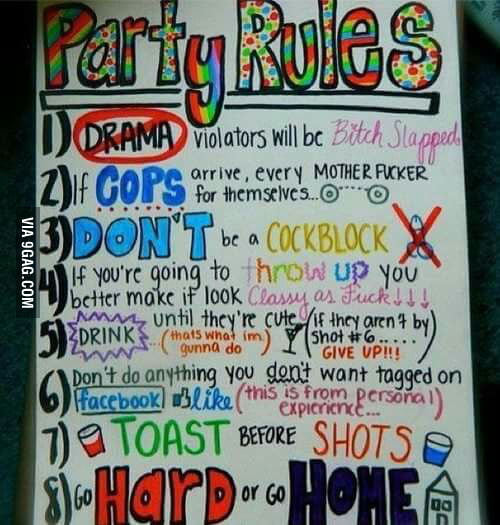 Party Rules
1) DRAMA violators will be Bitch Slapped
2) If COPS arrive, every MOTHER FUCKER
for themselves...
3) DON'T be a COCKBLOCK
4) If you're going to throw up you
better make it look Classy as Fuck↓↓↓
5) DRINK until they're cute (if they aren't by)
(thats what im) (shot #6.....)
gunna do GIVE UP!!!
6) Don't do anything you don't want tagged on
facebook like (this is from personal)
expierience...
7) TOAST BEFORE SHOTS
8) GO HARD or GO HOME
VIA 9GAG.COM